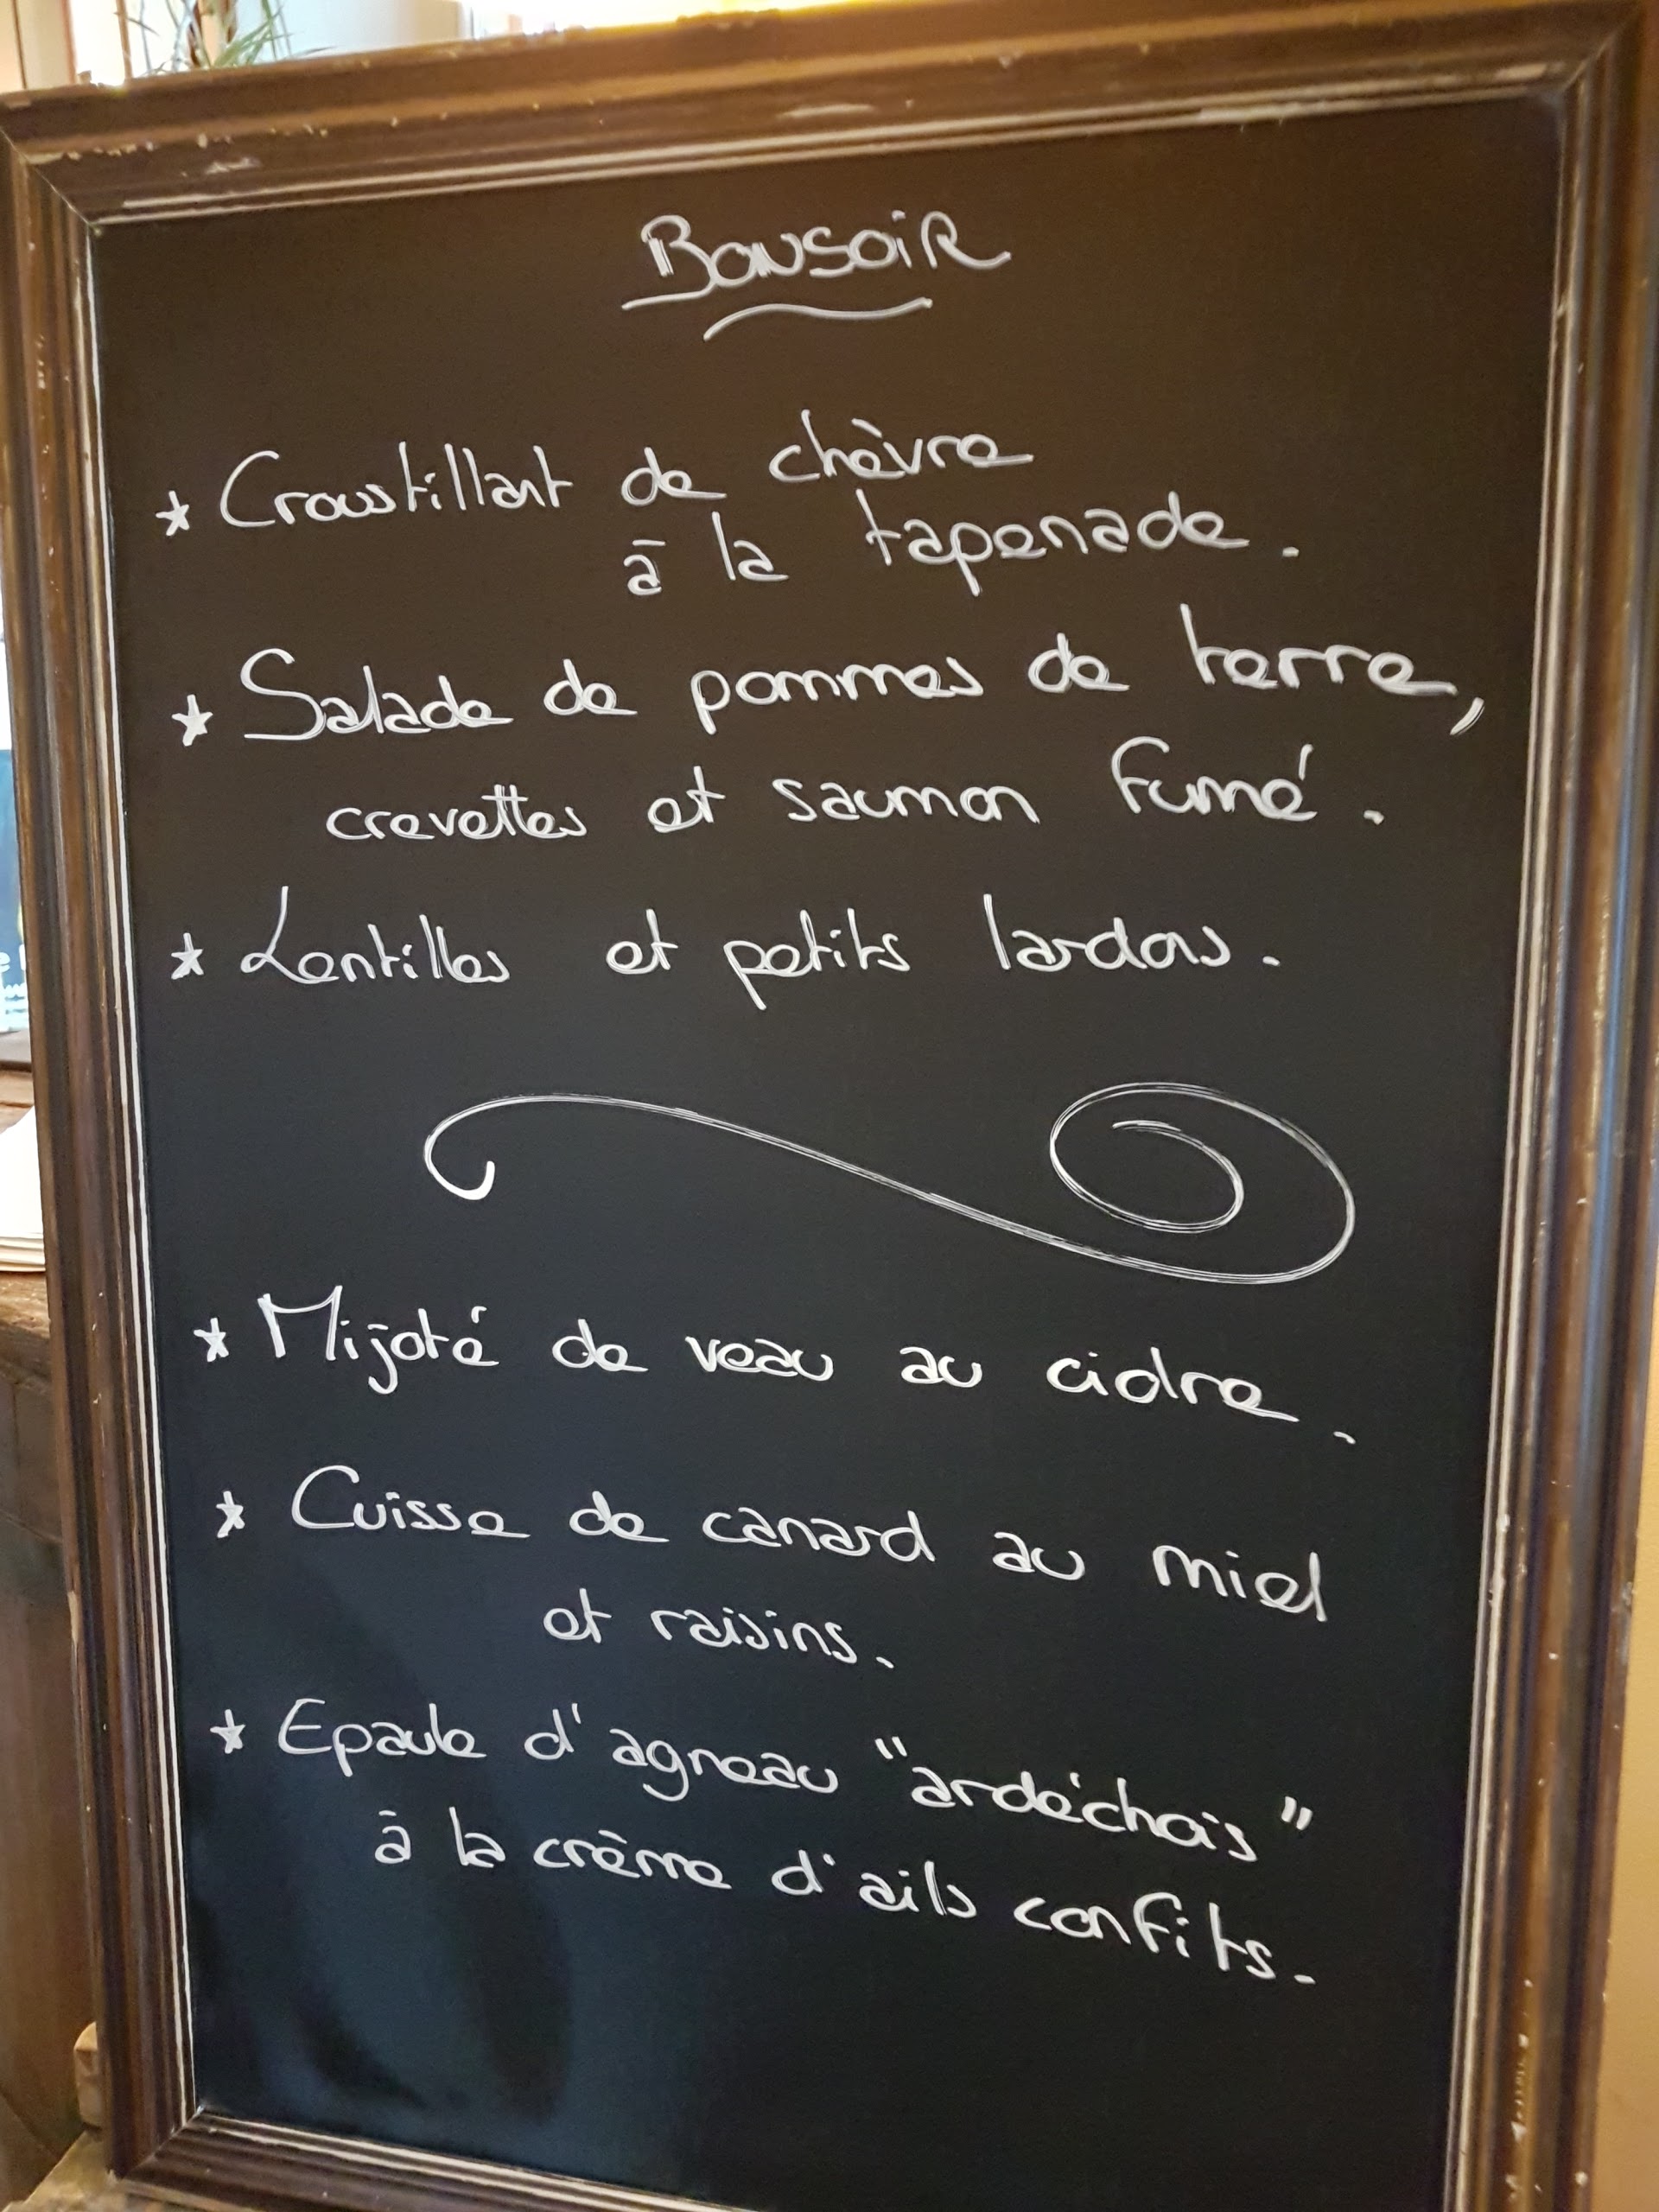 Bonsoir
* Croustillant de chèvre
à la tapenade.
* Salade de pommes de terre,
crevettes et saumon fumé.
* Lentilles et petits lardons.
* Mijoté de veau au cidre.
* Cuisse de canard au miel
et raisins.
* Epaule d'agneau "ardéchois"
à la crème d'ails confits.